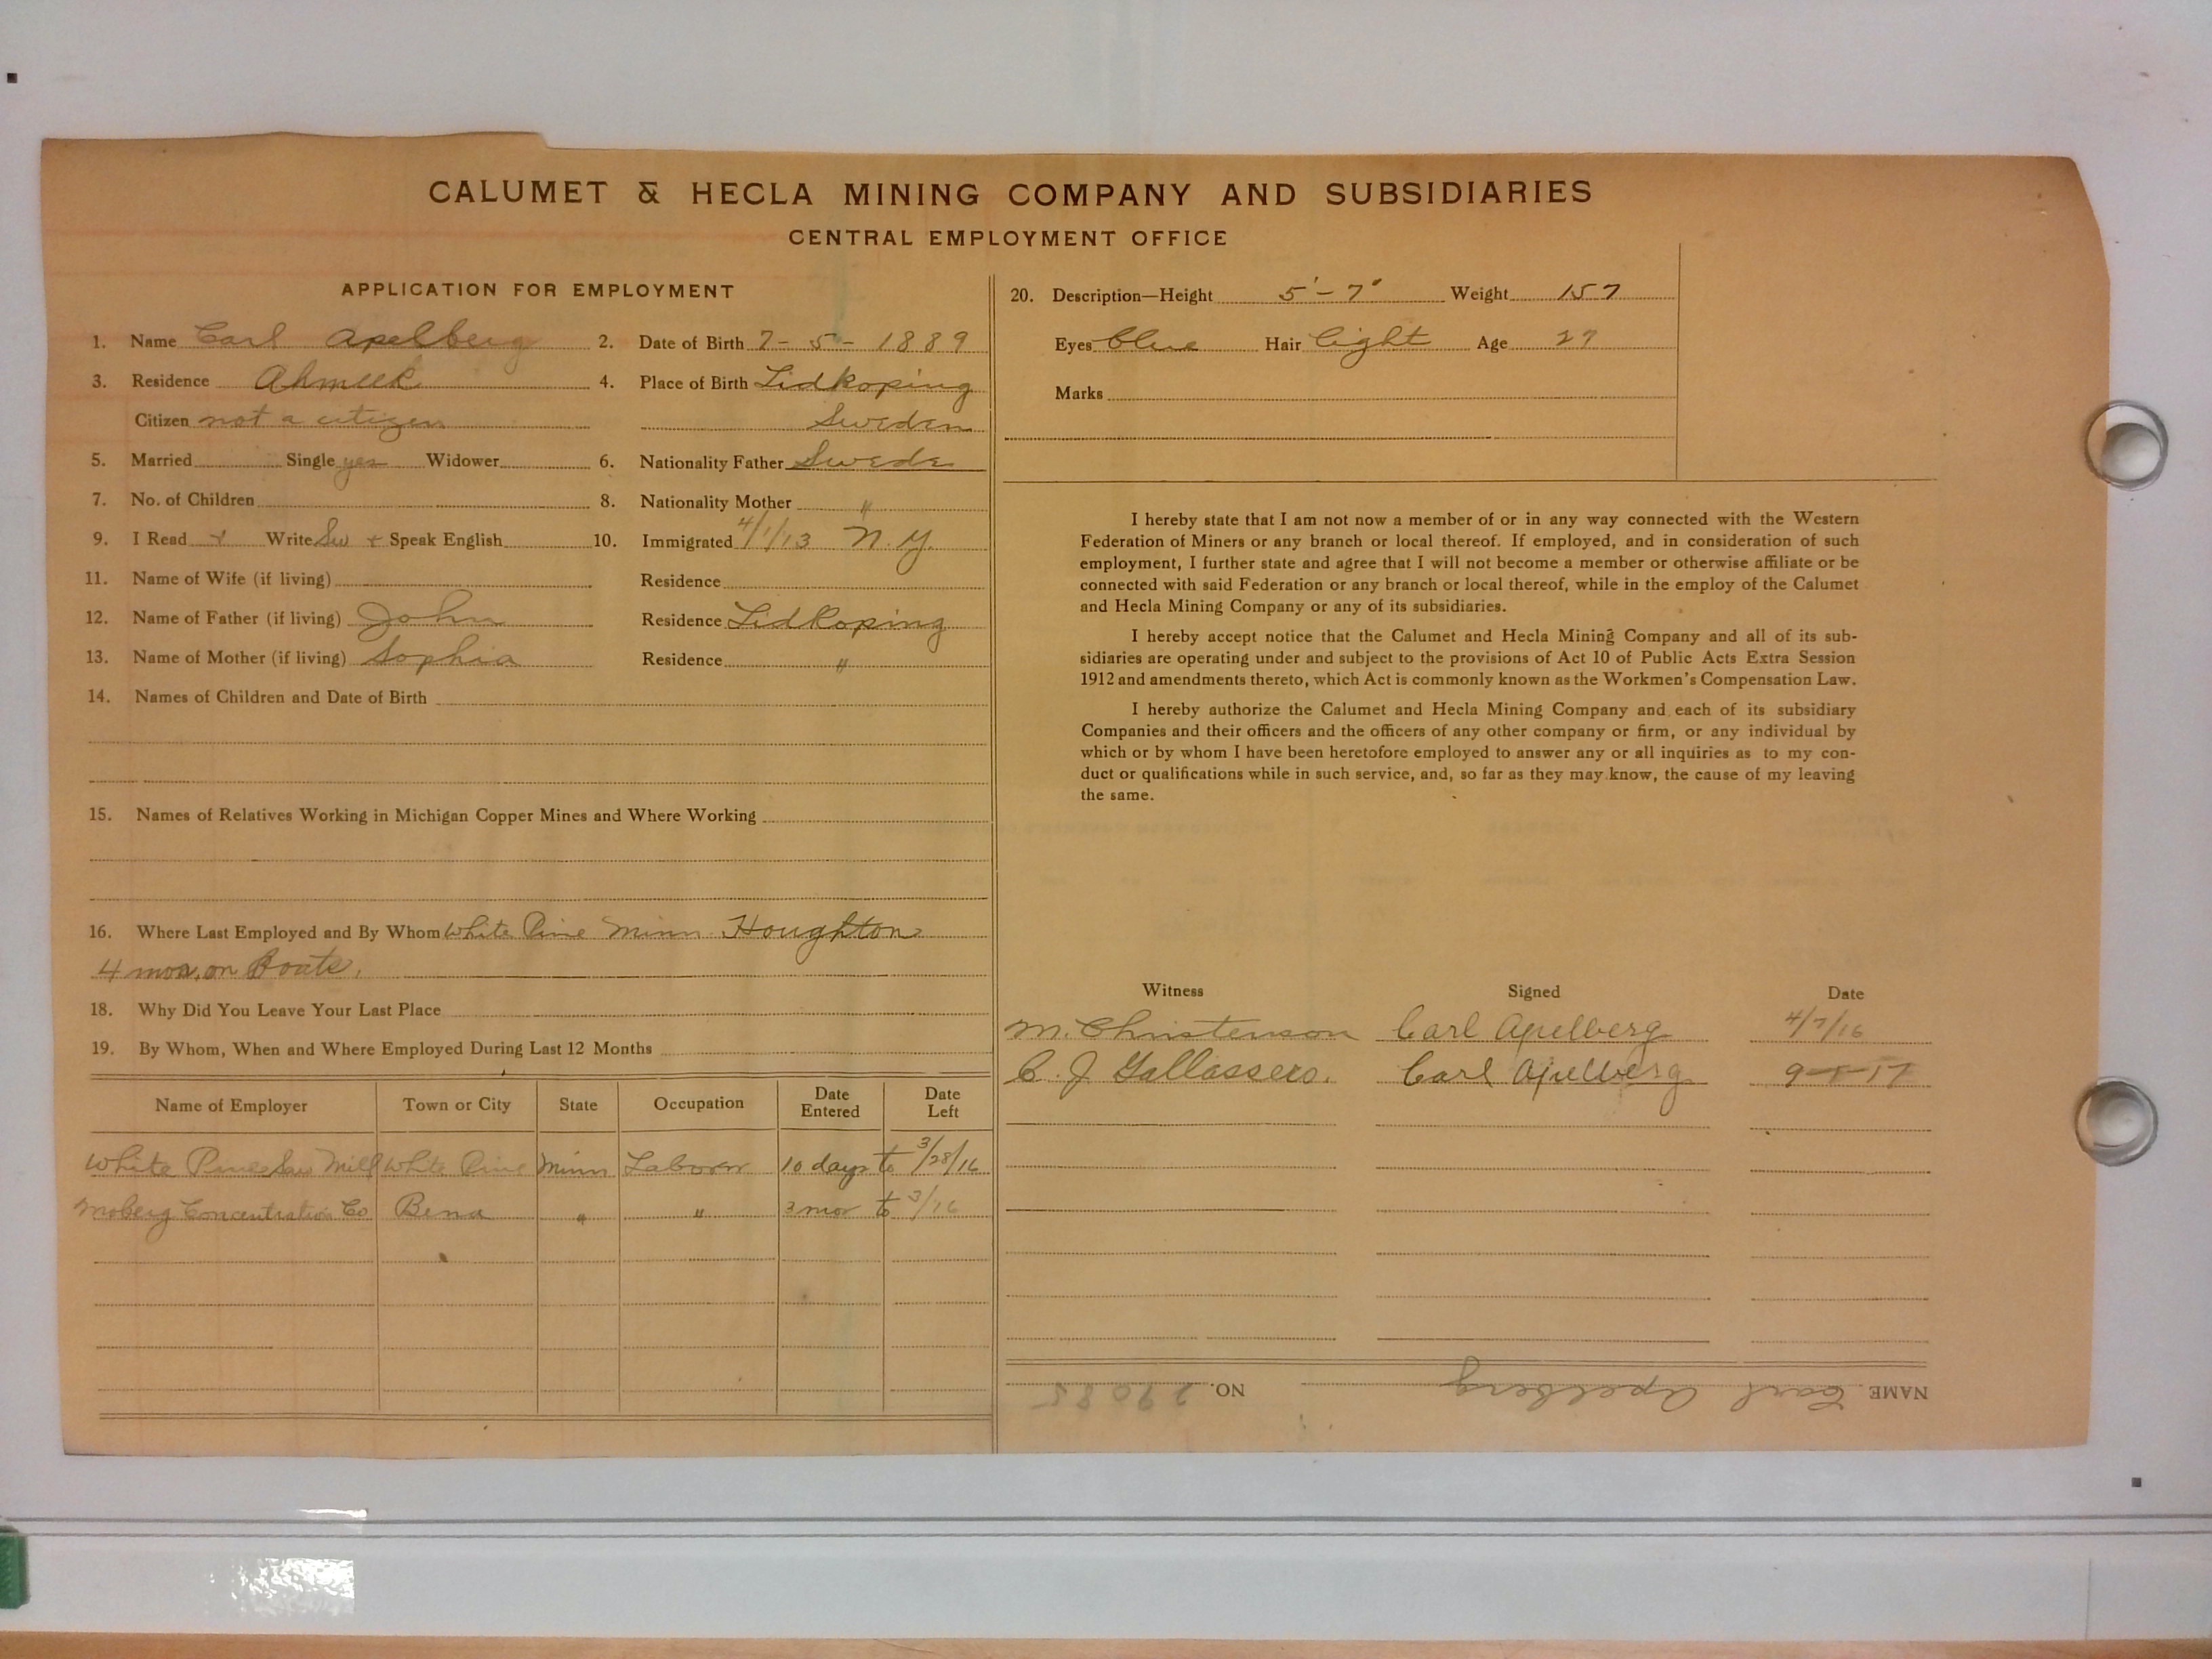 CALUMET & HECLA MINING COMPANY AND SUBSIDIARIES
CENTRAL EMPLOYMENT OFFICE
APPLICATION FOR EMPLOYMENT
1. Name Carl Apelberg 2. Date of Birth 7-5-1889
3. Residence Ahmeek 4. Place of Birth Lidkoping
Citizen not a citizen Sweden
5. Married Single yes Widower 6. Nationality Father Swede
7. No. of Children 8. Nationality Mother "
9. I Read + Write Sw + Speak English 10. Immigrated 4/1/13 N.Y.
11. Name of Wife (if living) Residence
12. Name of Father (if living) John Residence Lidkoping
13. Name of Mother (if living) Sophia Residence "
14. Names of Children and Date of Birth
15. Names of Relatives Working in Michigan Copper Mines and Where Working
16. Where Last Employed and By Whom White Pine Minn Houghton
4 mos. on Boats.
18. Why Did You Leave Your Last Place
19. By Whom, When and Where Employed During Last 12 Months
Name of Employer Town or City State Occupation Date Entered Date Left
White Pine Saw Mill White Pine Minn Laborer 10 days to 3/28/16
Moberg Concentration Co Bena " " 3 mos to 3/16
20. Description—Height 5'-7" Weight 157
Eyes blue Hair light Age 27
Marks
I hereby state that I am not now a member of or in any way connected with the Western
Federation of Miners or any branch or local thereof. If employed, and in consideration of such
employment, I further state and agree that I will not become a member or otherwise affiliate or be
connected with said Federation or any branch or local thereof, while in the employ of the Calumet
and Hecla Mining Company or any of its subsidiaries.
I hereby accept notice that the Calumet and Hecla Mining Company and all of its sub-
sidiaries are operating under and subject to the provisions of Act 10 of Public Acts Extra Session
1912 and amendments thereto, which Act is commonly known as the Workmen's Compensation Law.
I hereby authorize the Calumet and Hecla Mining Company and each of its subsidiary
Companies and their officers and the officers of any other company or firm, or any individual by
which or by whom I have been heretofore employed to answer any or all inquiries as to my con-
duct or qualifications while in such service, and, so far as they may know, the cause of my leaving
the same.
Witness Signed Date
M. Christenson Carl Apelberg 4/7/16
C. J. Gallassero. Carl Apelberg 9-1-17
NAME Carl Apelberg NO. 29085